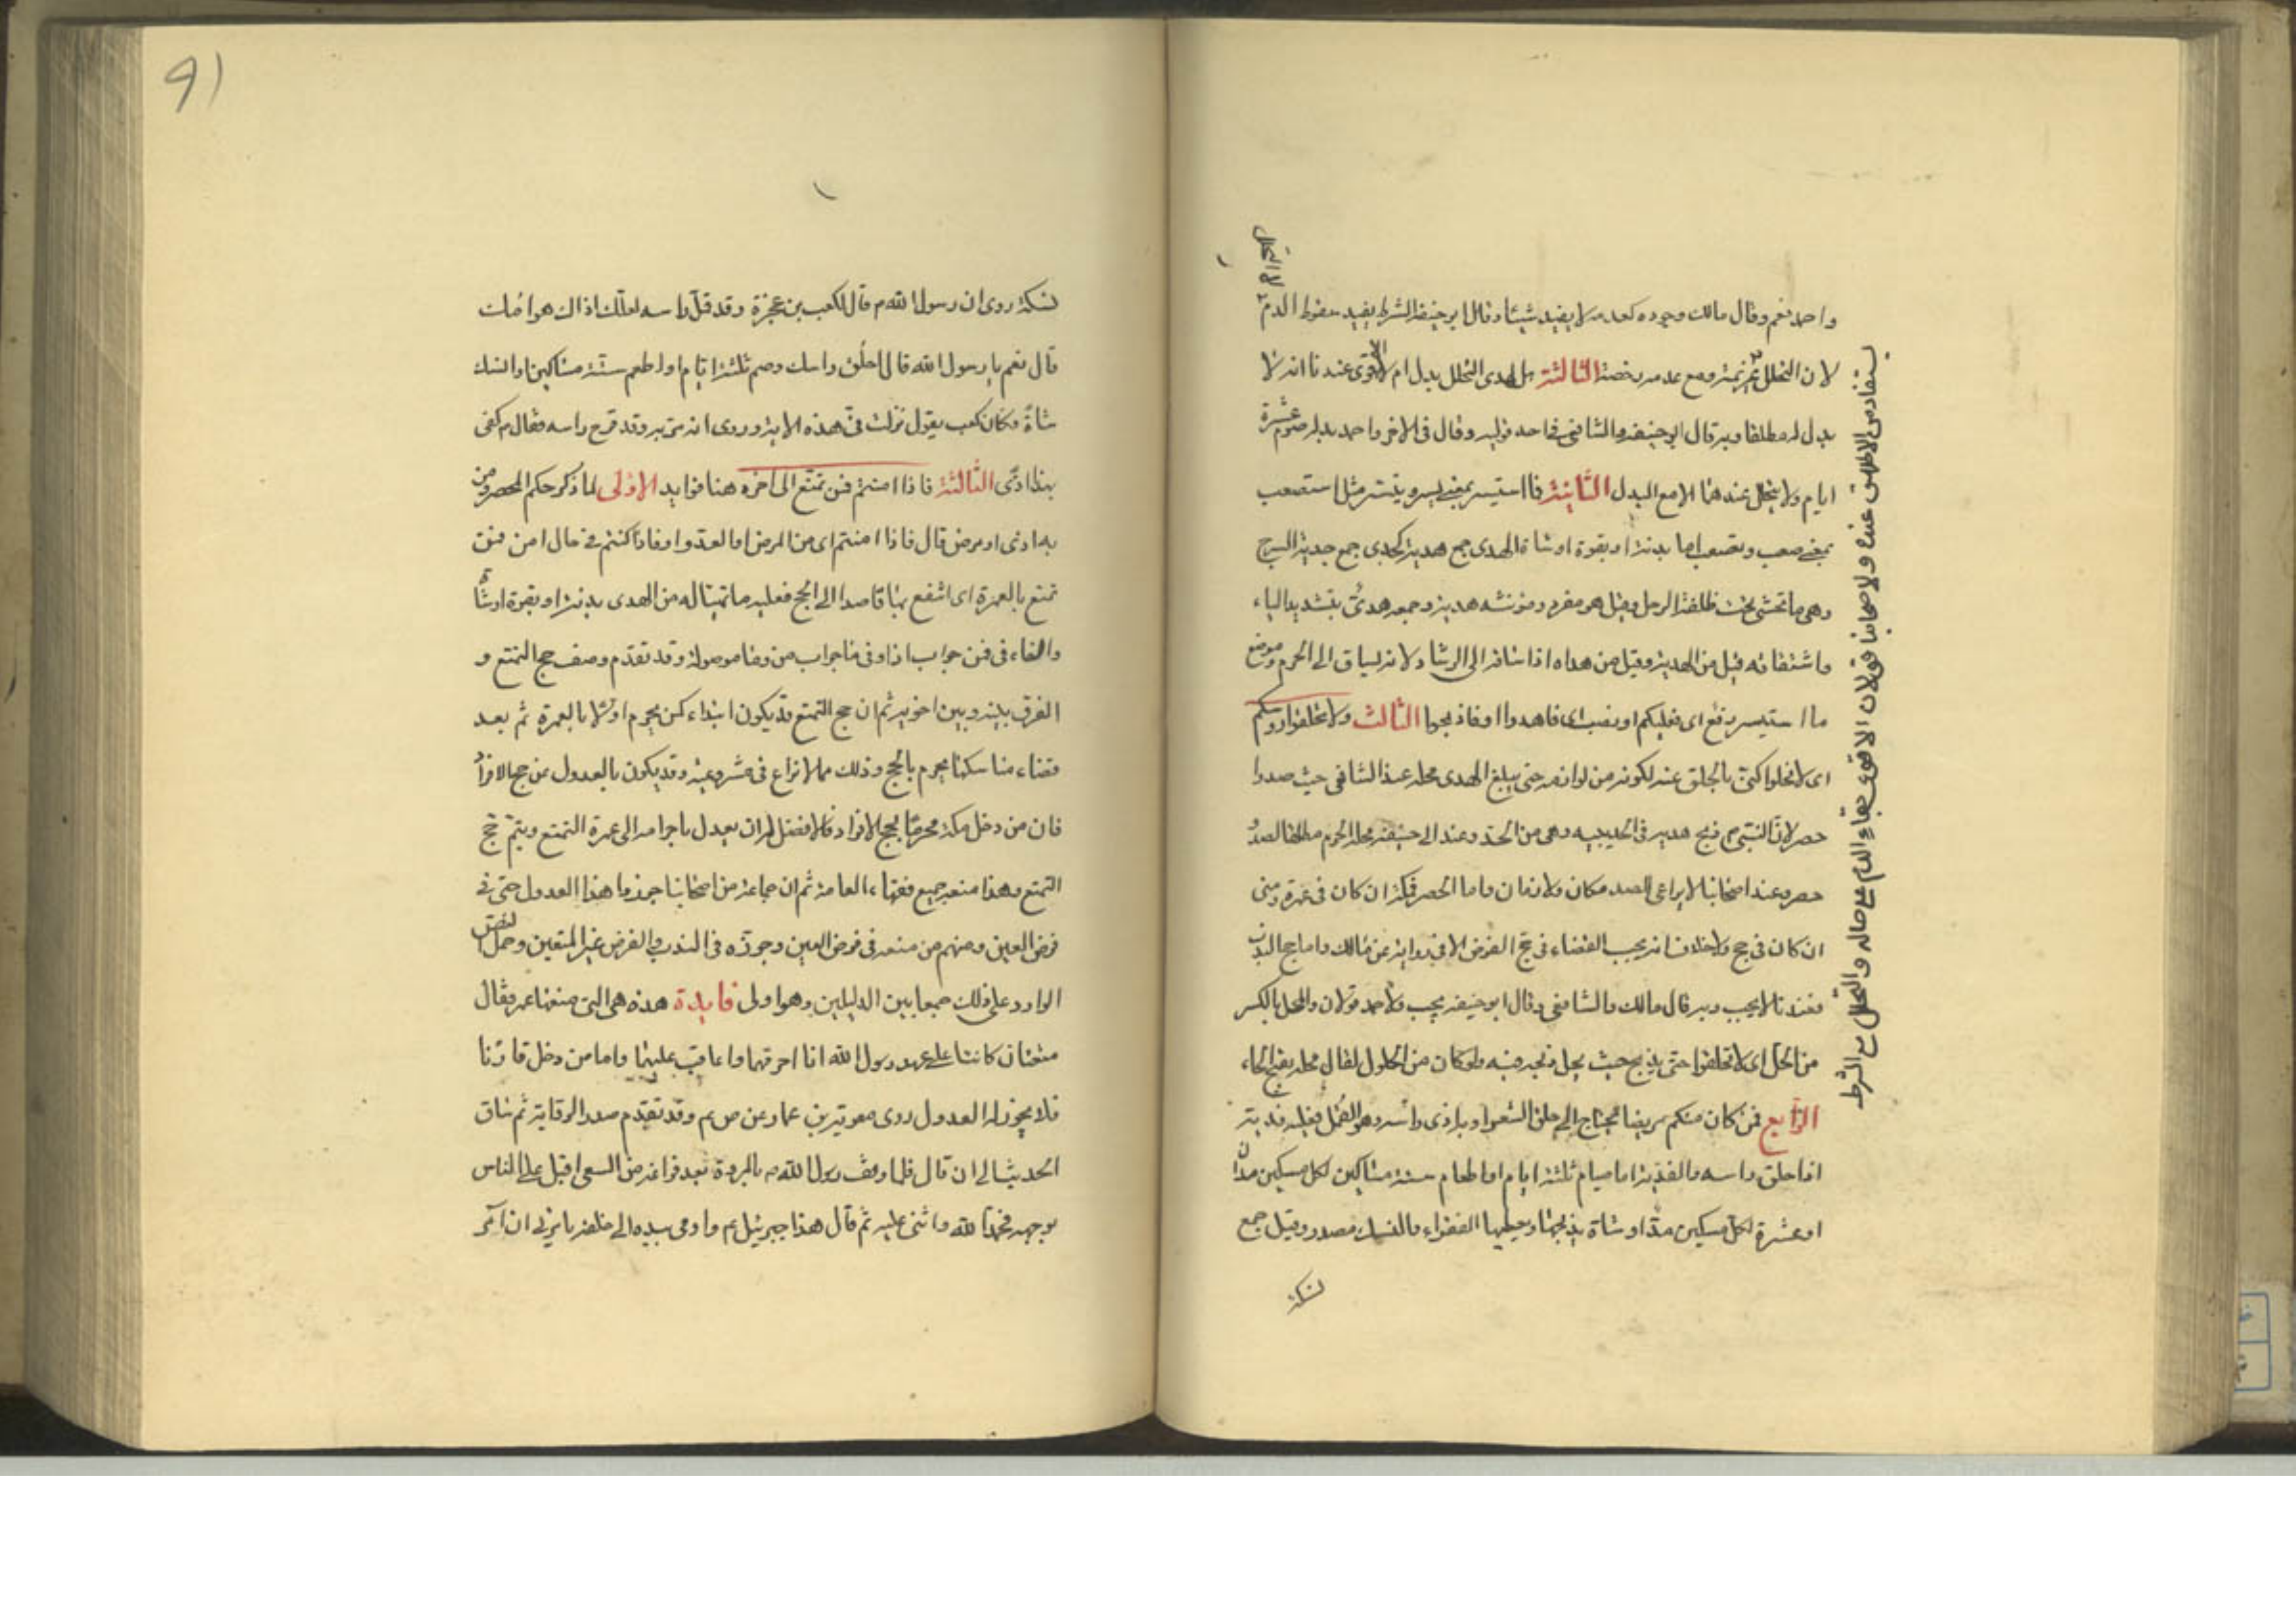 واحمد نعم وقال مالك وجوده كعدمه لا يفيد شيئا وقال ابو حنيفة الشرط يفيد سقوط الدم
لان التحلل عزيمة ومع عدمه رخصة الثالثة هل لهدى التحلل بدل ام لا الاقوى عندنا انه لا
بدل له مطلقا وبه قال ابو حنيفة والشافعى فى احد قوليه وقال فى الاخر واحمد بدله صوم عشرة
ايام ولا يتحلل عندهما الا مع البدل الثانية فما استيسر بمعنى يسر ويتسر مثل استصعب
بمعنى صعب وتصعب اما بدنة او بقرة او شاة الهدى جمع هدية كجدى جمع جدية السرج
وهى ما تحشى تحت ظلفة الرحل وقيل هو مفرد ومؤنثه هدية وجمعه هدىّ بتشديد الياء
واشتقاقه قيل من الهدية وقيل من هداه اذا ساقه الى الرشاد لانه يساق الى الحرم وموضع
ما استيسر رفع اى فعليكم او نصب اى فاهدوا او فاذبحوا الثالث ولا تحلقوا رؤسكم
اى لا تحلوا كنى بالحلق عنه لكونه من لوازمه حتى يبلغ الهدى محله عند الشافعى حيث صدوا
حصر لان النبى م ذبح هديه فى الحديبيه وهى من الحد وعند ابى حنيفة محله الحرم مطلقا لصد
حصر وعند اصحابنا لا يراعى للصد مكان ولا زمان واما الحصر فمكة ان كان فى عمرة ومنى
ان كان فى حج ولا خلاف انه يجب القضاء فى حج الفرض الا فى رواية عن مالك واما حج الندب
فعندنا لا يجب وبه قال مالك والشافعى وقال ابو حنيفة يجب ولاحمد قولان والمحل بالكسر
من الحل اى لا تحلقوا حتى يذبح حيث يحل ذبحه فيه ولو كان من الحلول لقال محله بفتح الحاء
الرابع فمن كان منكم مريضا يحتاج الى حلق الشعر او به اذى راسه وهو القمل فعليه فدية
اذا حلق راسه والفدية اما صيام ثلثة ايام او اطعام ستة مساكين لكل مسكين مدان
او عشرة لكل مسكين مدّ او شاة يذبحها ويعطيها الفقراء والنسك مصدر وقيل جمع
نسكة
يستفاد من الاطلاق عنده ولاصحابنا قولان الاقوى بقاء الدم على حاله والتحلل مع الشرط
91
نسكة روى ان رسول الله م قال لكعب بن عجرة وقد قمل راسه لعلك اذاك هوامك
قال نعم يا رسول الله قال احلق راسك وصم ثلثة ايام او اطعم ستة مساكين او انسك
شاة وكان كعب يقول نزلت فىّ هذه الاية وروى انه مر به وقد قرح راسه فقال م كفى
بهذا اذى الثالثة فاذا امنتم فمن تمتع الى اخره هنا فوايد الاولى لما ذكر حكم المحصر ومن
به اذى او مرض قال فاذا امنتم اى من المرض او العدو او فاذا كنتم فى حال امن فمن
تمتع بالعمرة اى انتفع بها قاصدا الى الحج فعليه ما تهيا له من الهدى بدنة او بقرة او شاة
والفاء فى فمن جواب اذا وفى فما جواب من وما موصولة وقد تقدم وصف حج التمتع و
الفرق بينه وبين اخويه ثم ان حج التمتع قد يكون ابتداء كمن يحرم اولا بالعمرة ثم بعد
قضاء مناسكها يحرم بالحج وذلك مما لا نزاع فى مشروعيته وقد يكون بالعدول عن حج الافراد
فان من دخل مكة محرما بحج الافراد فالافضل له ان يعدل باحرامه الى عمرة التمتع ويتم حج
التمتع وهذا منعه جميع فقهاء العامة ثم ان جماعة من اصحابنا جوزوا هذا العدول حتى فى
فرض العين ومنهم من منعه فى فرض العين وجوزه فى الندب والفرض غير المتعين وحمل النص
الوارد على ذلك جمعا بين الدليلين وهو اولى فايدة هذه هى التى منعها عمر فقال
متعتان كانتا على عهد رسول الله انا احرمهما واعاقب عليهما واما من دخل قارنا
فلا يجوز له العدول روى معوية بن عمار عن ص ع م وقد تقدم صدر الرواية ثم ساق
الحديث الى ان قال فلما وقف رسول الله م بالمروة بعد فراغه من السعى اقبل على الناس
بوجهه فحمد الله واثنى عليه ثم قال هذا جبرئيل ع م واومى بيده الى خلفه يامرنى ان آمر